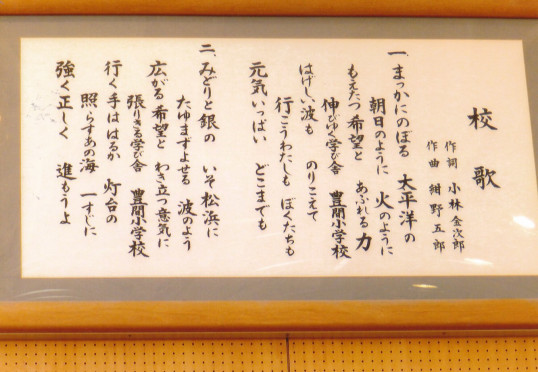 校歌
作詞 小林金次郎
作曲 紺野五郎
一、まっかにのぼる 太平洋の
朝日のように 火のように
もえたつ希望と あふれる力
伸びゆく学び舎 豊間小学校
はげしい波も のりこえて
行こうわたしも ぼくたちも
元気いっぱい どこまでも
二、みどりと銀の いそ松浜に
たゆまずよせる 波のよう
広がる希望と わき立つ意気に
張りきる学び舎 豊間小学校
行く手ははるか 灯台の
照らすあの海 一すじに
強く正しく 進もうよ